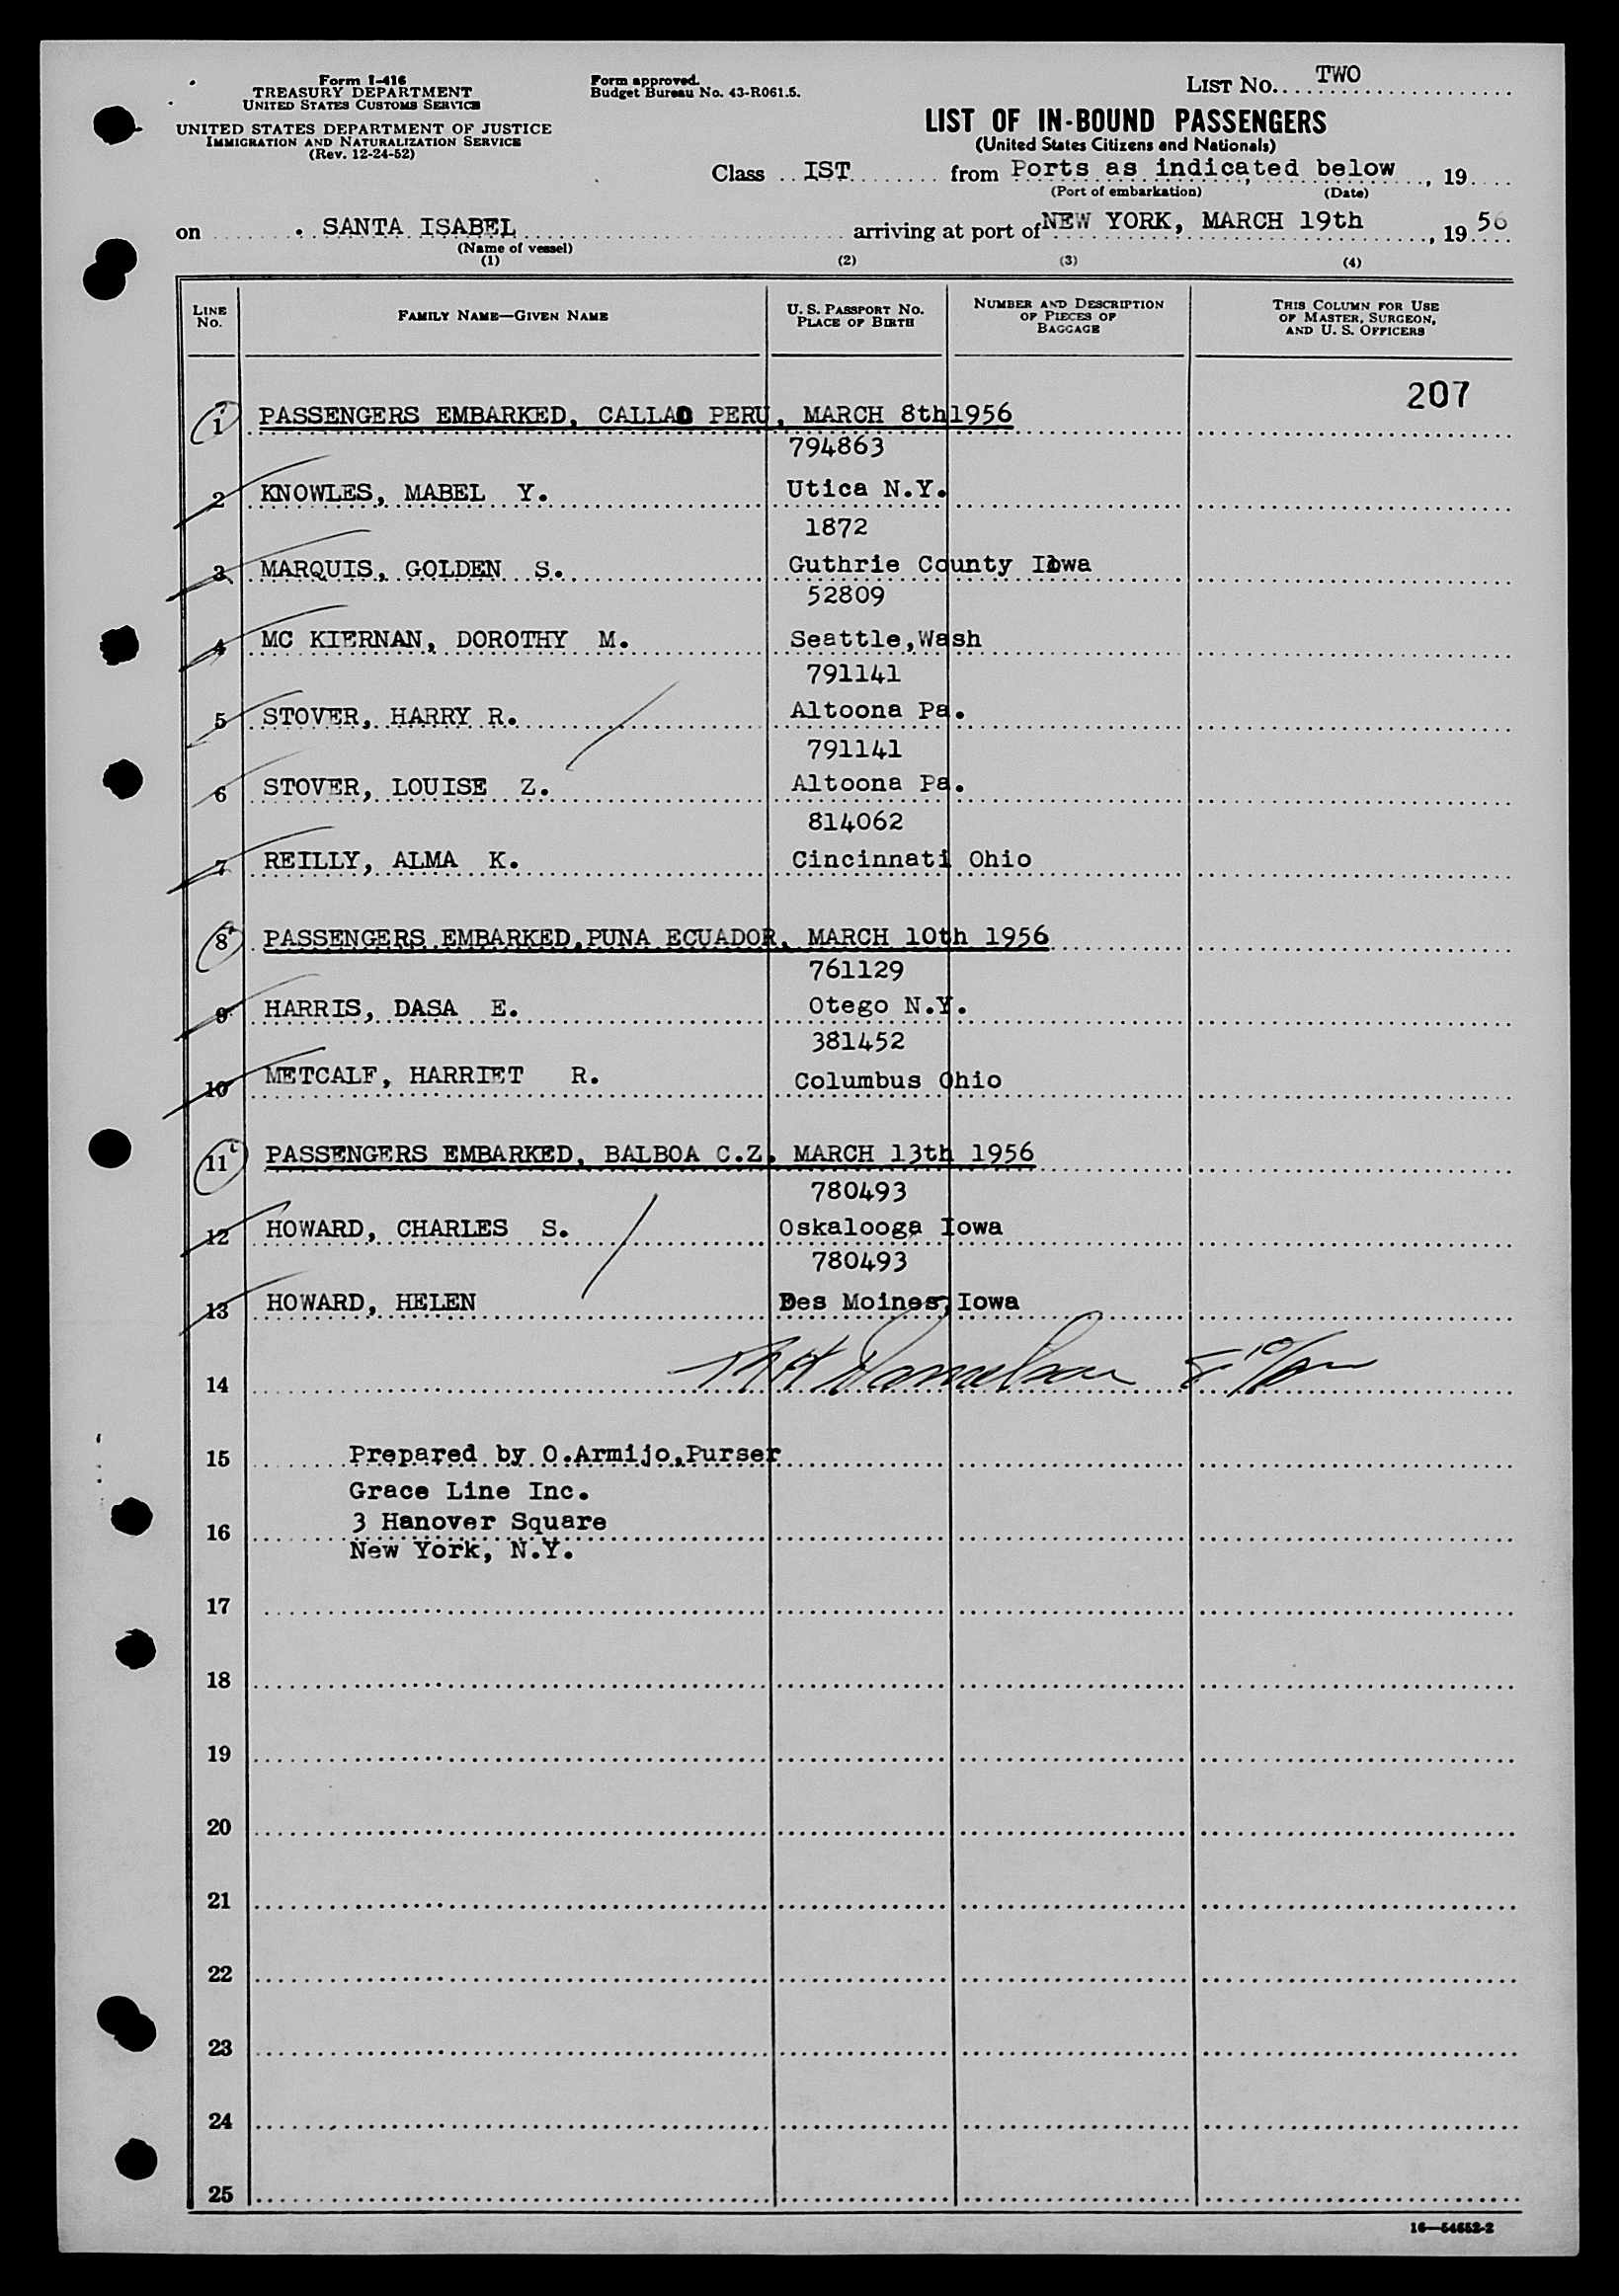 Form I-416
TREASURY DEPARTMENT
UNITED STATES CUSTOMS SERVICE
UNITED STATES DEPARTMENT OF JUSTICE
IMMIGRATION AND NATURALIZATION SERVICE
(Rev. 12-24-52)
Form approved.
Budget Bureau No. 43-R061.5.
LIST No. TWO
LIST OF IN-BOUND PASSENGERS
(United States Citizens and Nationals)
Class IST from Ports as indicated below, 19
(Port of embarkation) (Date)
on SANTA ISABEL arriving at port of NEW YORK, MARCH 19th, 19 56
(Name of vessel)
(1) (2) (3) (4)
LINE No. FAMILY NAME—GIVEN NAME U. S. PASSPORT No. PLACE OF BIRTH NUMBER AND DESCRIPTION OF PIECES OF BAGGAGE THIS COLUMN FOR USE OF MASTER, SURGEON, AND U. S. OFFICERS
207
1 PASSENGERS EMBARKED, CALLAO PERU, MARCH 8th 1956
794863
2 KNOWLES, MABEL Y. Utica N.Y.
1872
3 MARQUIS, GOLDEN S. Guthrie County Iowa
52809
4 MC KIERNAN, DOROTHY M. Seattle,Wash
791141
5 STOVER, HARRY R. Altoona Pa.
791141
6 STOVER, LOUISE Z. Altoona Pa.
814062
7 REILLY, ALMA K. Cincinnati Ohio
8 PASSENGERS EMBARKED,PUNA ECUADOR, MARCH 10th 1956
761129
9 HARRIS, DASA E. Otego N.Y.
381452
10 METCALF, HARRIET R. Columbus Ohio
11 PASSENGERS EMBARKED, BALBOA C.Z. MARCH 13th 1956
780493
12 HOWARD, CHARLES S. Oskalooga Iowa
780493
13 HOWARD, HELEN Des Moines, Iowa
14
15 Prepared by O.Armijo,Purser
Grace Line Inc.
16 3 Hanover Square
New York, N.Y.
17
18
19
20
21
22
23
24
25
16—54652-2